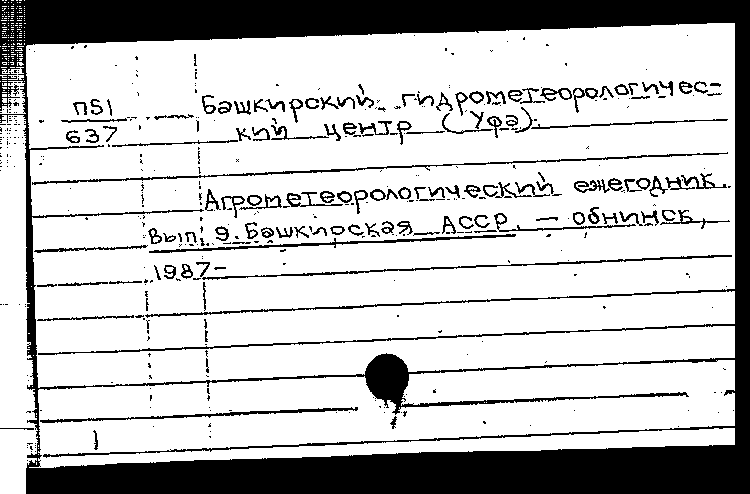 П51
637
Башкирский гидрометеорологичес-
кий центр (Уфа).
Агрометеорологический ежегодник.
Вып. 9. Башкирская АССР. — Обнинск,
1987-
1